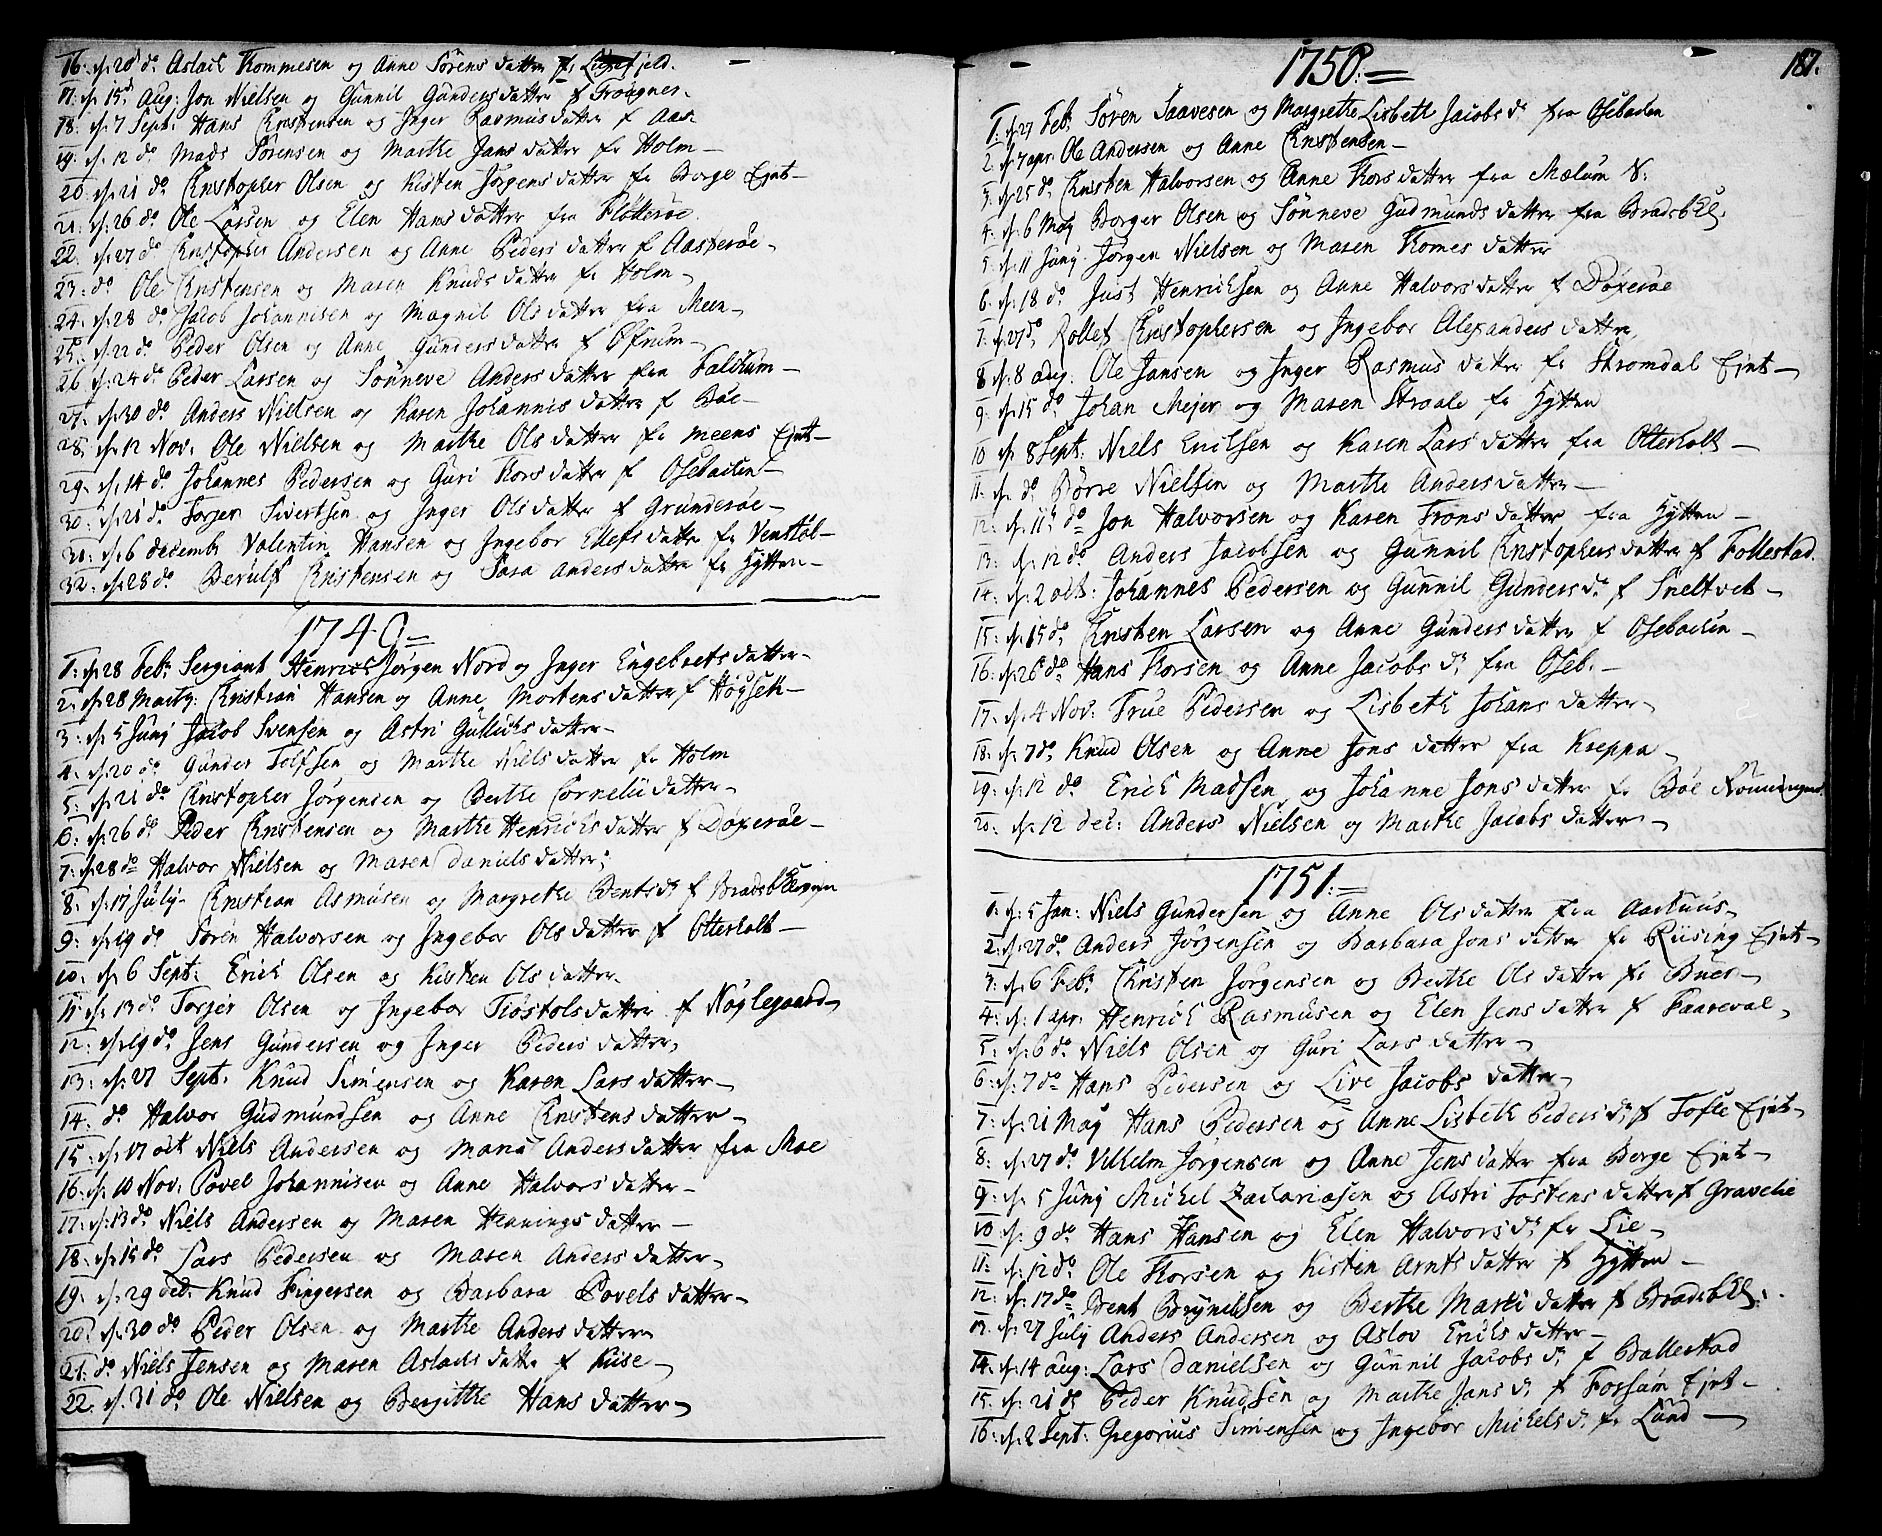 16: d. 20 do Aslack Thommesen og Anne Sörens datter fr
17: d. 15 Aug: Jon Nielsen og Gunnil Gunders datter f Frougner.
18: d. 7 Sept: Hans Christensen og Inger Rasmus datter f Aas
19: d. 12 do Mads Sörensen og Marthe Jans datter fr Holm
20: d. 21 do Christopher Olsen og Kisten Jörgens datter fr Borge Ejet
21: d. 26 do Ole Larsen og Elen Hans datter fra Flötteröe
22: d. 27 do Christopher Andersen og Anne Peders datter f Aasteröe
23: do Ole Christensen og Maren Knuds datter fr Holm
24: d. 28 do Jacob Johannisen og Magnil Ols datter fra Meen
25: d. 22 do Peder Olsen og Anne Gunders datter f Ofrum
26: d. 24 do Peder Larsen og Sönneve Anders datter fra Falckum
27: d. 30 do Anders Nielsen og Karen Johannis datter f Böe
28: d. 12 Nov: Ole Nielsen og Marthe Ols datter fr Meens Ejet
29: d. 14 do Johannes Pedersen og Guri Thors datter f Osebacken
30: d. 21 do Torjer Sivertsen og Inger Ols datter f Grunderöe
31: d. 6 decembr Valentin Hansen og Ingebor Ellefs datter fr Venstöl
32: d. 28 do Berulf Christensen og Sara Anders datter fr Hytten
1749
1: d. 28 Feb: Sergiant Henrich Jörgen Nord og Inger Engebrets datter
2: d. 28 Martij: Christian Hansen og Anne Mortens datter f Högset
3: d. 5 Junij Jacob Svensen og Astri Gullichs datter
4: d. 20 do Gunder Tolfsen og Marthe Niels datter fr Holm
5: d. 21 do Christopher Jörgensen og Berthe Cornelii datter
6: d. 26 do Peder Christensen og Marthe Henrichs datter f Doxeröe
7: d. 28 do Halvor Nielsen og Maren Daniels datter
8: d. 17 July Christian Asmusen og Margrethe Bents dr f
9: d. 19 do Sören Halvorsen og Ingebor Ols datter f Otterholt
10: d. 6 Sept: Erich Olsen og Kisten Ols datter
11: d. 13 do Torjer Olsen og Ingebor Tiöstols datter f Nöglegaard
12: d. 19 do Jens Gundersen og Inger Peders datter
13: d. 27 Sept: Knud Simensen og Karen Lars datter
14: do Halvor Gudmundsen og Anne Christens datter
15: d. 17 oct Niels Andersen og Maria Anders datter fra Moe
16: d. 10 Nov: Povel Johannisen og Anne Halvors datter
17: d. 13 do Niels Andersen og Maren Hennings datter
18: d. 15 do Lars Pedersen og Maren Anders datter
19: d. 29 dec: Knud Fingersen og Barbara Povels datter
20: d. 30 do Peder Olsen og Marthe Anders datter
21: do Niels Jensen og Maren Aslachs datter f Kiise
22: d. 31 do Ole Nielsen og Bergitthe Hans datter
187.
1750
1: d. 27 Feb: Sören Saavesen og Margrethe Lisbeth Jacobs dr fra Osebacken
2 d. 7 apr Ole Andersen og Anne Christensen
3: d. 25 do Christen Halvorsen og Anne Thors datter fra Mælum S:
4: d. 6 Maij Borger Olsen og Sönneve Gudmunds datter fra Bradsb El
5: d. 11 Junij Jörgen Nielsen og Maren Thomes datter
6: d. 18 do Just Henrichsen og Anne Halvors datter f Doxeröe
7: d. 27 do Rollef Christophersen og Ingebor Alexanders datter
8 d. 8 aug: Ole Jansen og Inger Rasmus datter fr Strömdal Ejet
9: d. 15 do Johan Mejer og Maren Straale fr Hytten
10 d. 8 Sept: Niels Erichsen og Karen Lars datter fra Otterholt
11: d. do Börre Nielsen og Marthe Anders datter
12: d. 11 do Jon Halvorsen og Karen Trons datter fra Hytten
13: d. 12 do Anders Jacobsen og Gunnil Christophers datter f Follestad
14: d. 2 oct: Johannes Pedersen og Gunnil Gunders dr f Sneltvet
15: d. 15 do Christen Larsen og Anne Gunders datter f Osebacken
16: d. 26 do Hans Thorsen og Anne Jacobs dr fra Oseb.
17: d. 4 Nov: True Pedersen og Lisbeth Johans datter
18: d. 7 do Knud Olsen og Anne Jons datter fra Kreppa
19: d. 12 do Erich Madsen og Johanne Jons datter fr Böe
20: d. 12 dec: Anders Nielsen og Marthe Jacobs datter
1751
1: d. 5 Jan: Niels Gundersen og Anne Ols datter fra Aarhuus
2: d. 27 do Anders Jörgensen og Barbara Jons datter fr Riising Ejet
3: d. 6 Feb: Christen Jörgensen og Berthe Ols datter fr Buer
4: d. 1 apr: Henrich Rasmusen og Elen Jens datter f Faareval
5: d. 6 do Niels Olsen og Guri Lars datter
6: d. 7 do Hans Pedersen og Live Jacobs datter
7: d. 21 Maij Hans Pedersen og Anne Lisbeth Peders dr f Tofte Ejet
8: d. 27 do Vilhelm Jörgensen og Anne Jens datter fra Berge Ejet
9: d. 5 Junij Michel Zachariasen og Astri Tostens datter f Gravelie
10 d. 9 do Hans Hansen og Elen Halvors dr fr Lie
11: d. 12 do Ole Thorsen og Kisten Arnts datter f Hytten
12: d. 17 do Bent Brynilsen og Berthe Marci datter f Bradsb El:
13: d. 27 July Anders Andersen og Aslov Erichs datter
14: d. 14 aug: Lars Danielsen og Gunnil Jacobs dr f Ballestad
15: d. 21 do Peder Knudsen og Marthe Jans dr f Fossum Ejet
16: d. 2 Sept: Gregorius Simensen og Ingebor Michels dr fr Lund